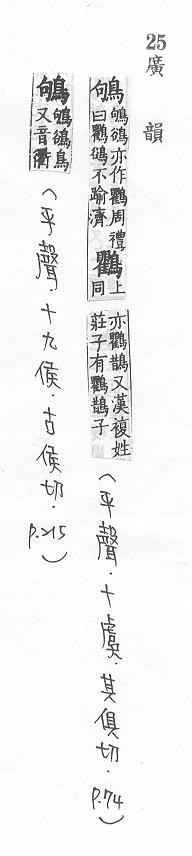 25 廣韻
鴝 鴝鵒亦作鸜周禮曰鸜鵒不踰濟 鸜 上同 亦鸜鵲又漢複姓莊子有鸜鵲子 (平聲.十虞.其俱切.p.74)
鴝 鴝鵒鳥又音衢 (平聲.十九侯.古侯切.p.215)